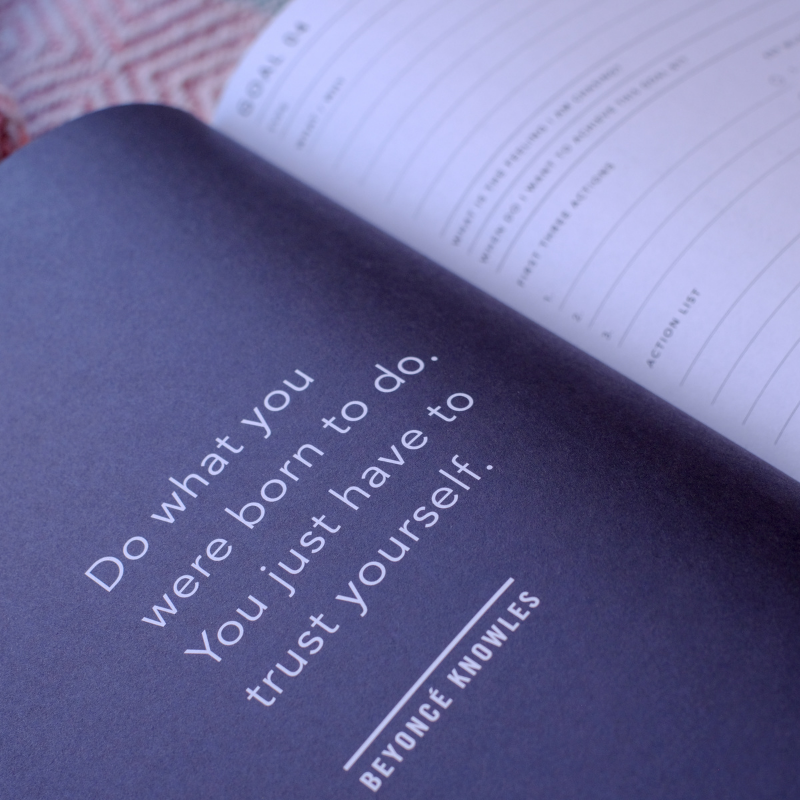 Do what you
were born to do.
You just have to
trust yourself.
BEYONCÉ KNOWLES
GOAL 04
WHAT I WANT
WHAT IS THE FEELING I AM CHASING?
WHEN DO I WANT TO ACHIEVE THIS GOAL BY?
FIRST THREE ACTIONS
1.
2.
3.
ACTION LIST